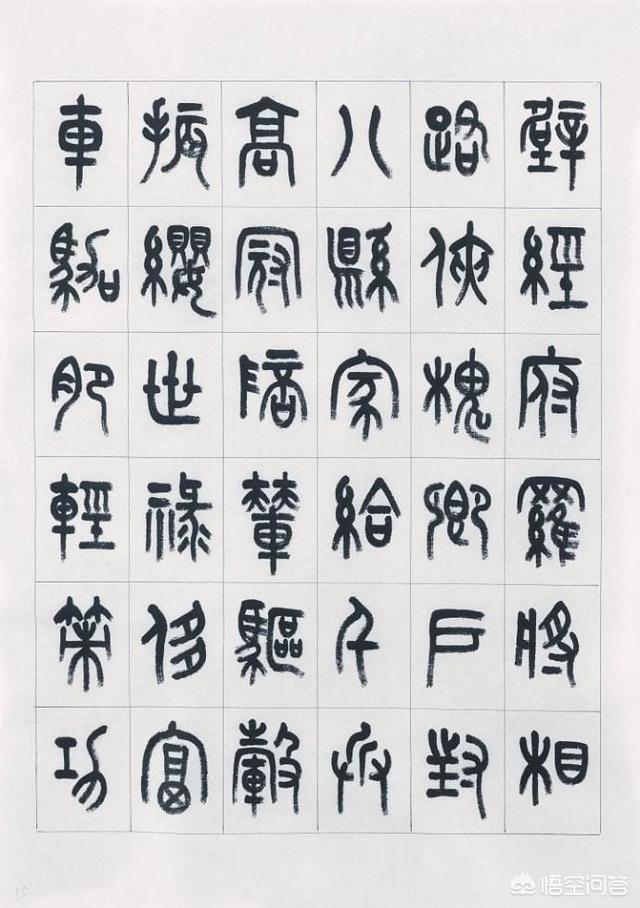 壁經府羅將相
路俠槐卿戶封
八縣家給千兵
高冠陪輦驅轂
振纓世祿侈富
車駕肥輕策功
15
悟空问答